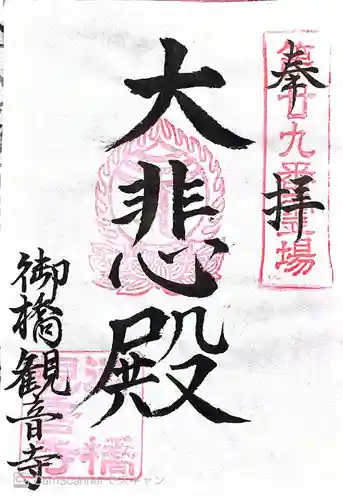 奉拝
第廿九番霊場
大悲殿
御橋観音寺
CamScannerでスキャン